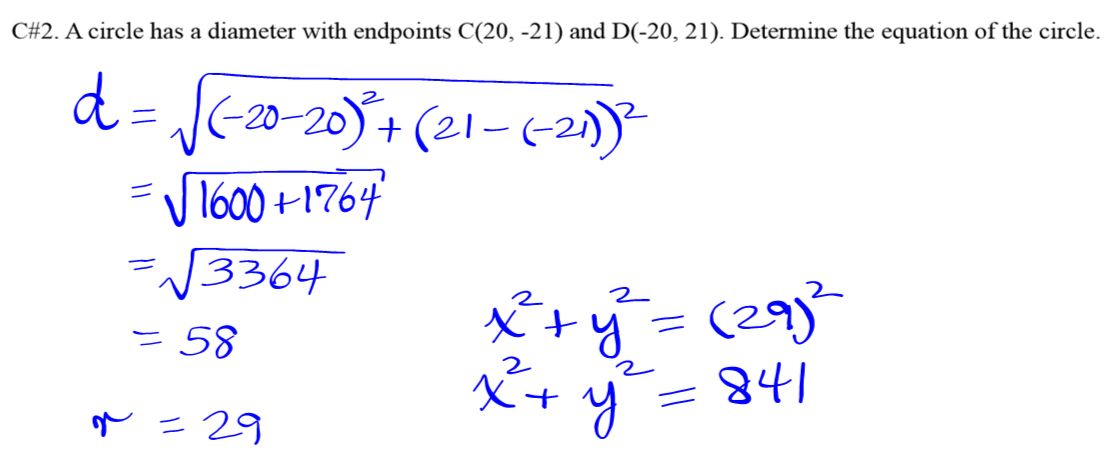 C#2. A circle has a diameter with endpoints C(20, -21) and D(-20, 21). Determine the equation of the circle.
d = √((-20-20)² + (21-(-21))²
= √1600+1764
= √3364
= 58
r = 29
x² + y² = (29)²
x² + y² = 841